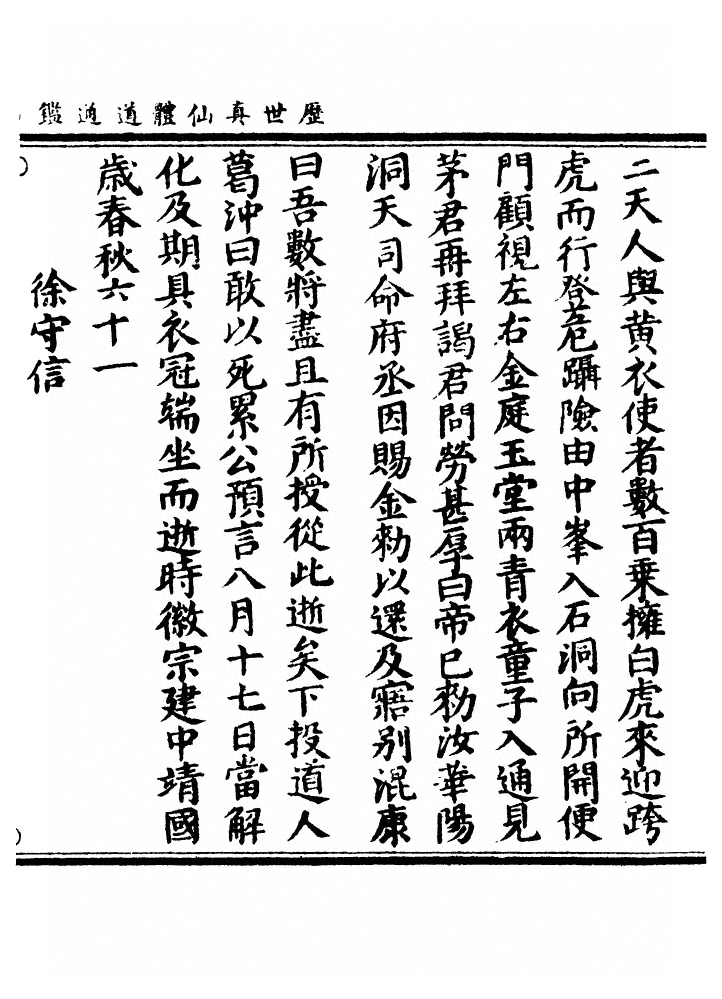 歷世真仙體道通鑑
二天人與黃衣使者數百乗擁白虎來迎跨
虎而行登危躡險由中峯入石洞向所開便
門顧視左右金庭玉堂兩青衣童子入通見
茅君再拜謁君問勞甚厚曰帝已勑汝華陽
洞天司命府丞因賜金勑以還及寤別混康
曰吾數將盡且有所授從此逝矣下投道人
葛沖曰敢以死累公預言八月十七日當解
化及期具衣冠端坐而逝時徽宗建中靖國
歲春秋六十一
徐守信